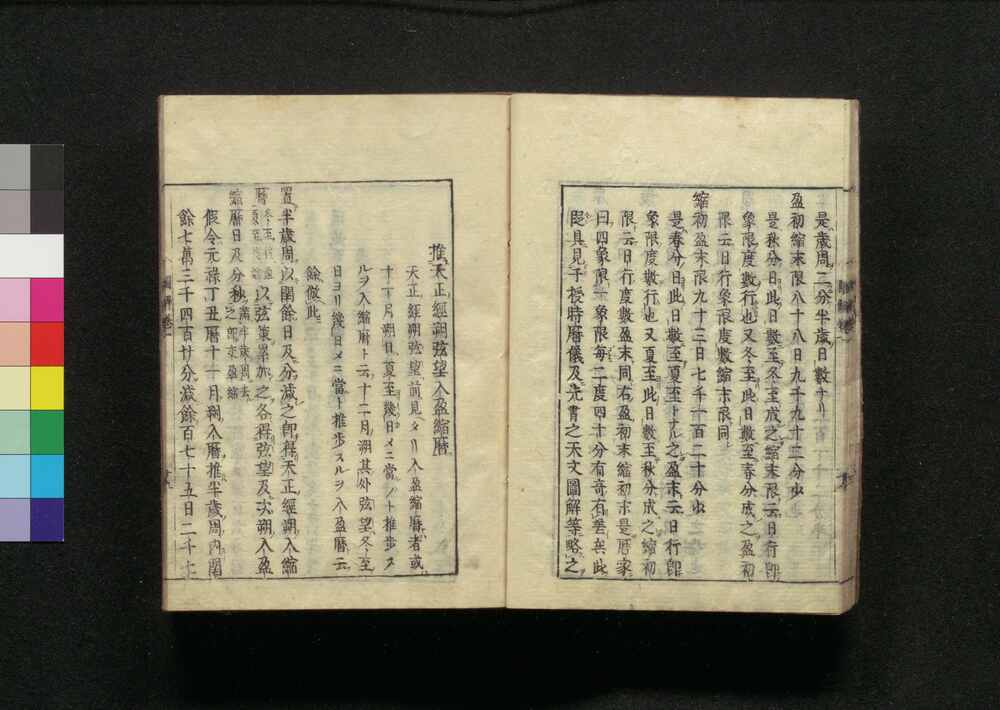 是歳周二分半歳日數ナリ
盈初縮末限八十八日九千九十二分少
是秋分日此日數至冬至成之縮末限云日行卽
象限度數行也又冬至此日數至春分成之盈初
限云日行象限度數縮末限同
縮初盈末限九十三日七千一百二十分少
是春分日此日數至夏至トナル之盈末云日行卽
象限度數行也又夏至此日數至秋分成之縮初
限云日行度數盈末同右盈初末縮初末是暦家
曰四象限一象限每二度四十分有奇有差矣此
臣具見于授時暦儀及先書之天文圖解等略之
推天正經朔弦望入盈縮暦
天正經朔弦望前見タリ入盈縮暦者或
十一月朔日夏至幾日メニ當ノト推歩ス
ルヲ入縮暦ト云十二月朔其外弦望冬至
日ヨリ幾日メニ當ト推歩スルヲ入盈暦云
餘倣此
置半歳周以閏餘日及分減之卽得天正經朔入縮
暦以弦策累加之各得弦望及次朔入盈
縮暦日及分秋滿半歳周去之卽交盈縮
假令元禄丁丑暦十一月朔入暦推半歳周內閏
餘七萬三千四百廿分減餘百七十五日二千七